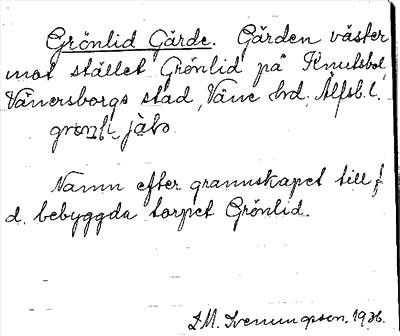 Grönlid Gärde. Gärden väster
mot stället Grönlid på Knutsbol,
Vänersborgs stad, Väne hrd. Älfsb. l.
Namn efter grannskapet till f
d. bebyggda torpet Grönlid.
1936.